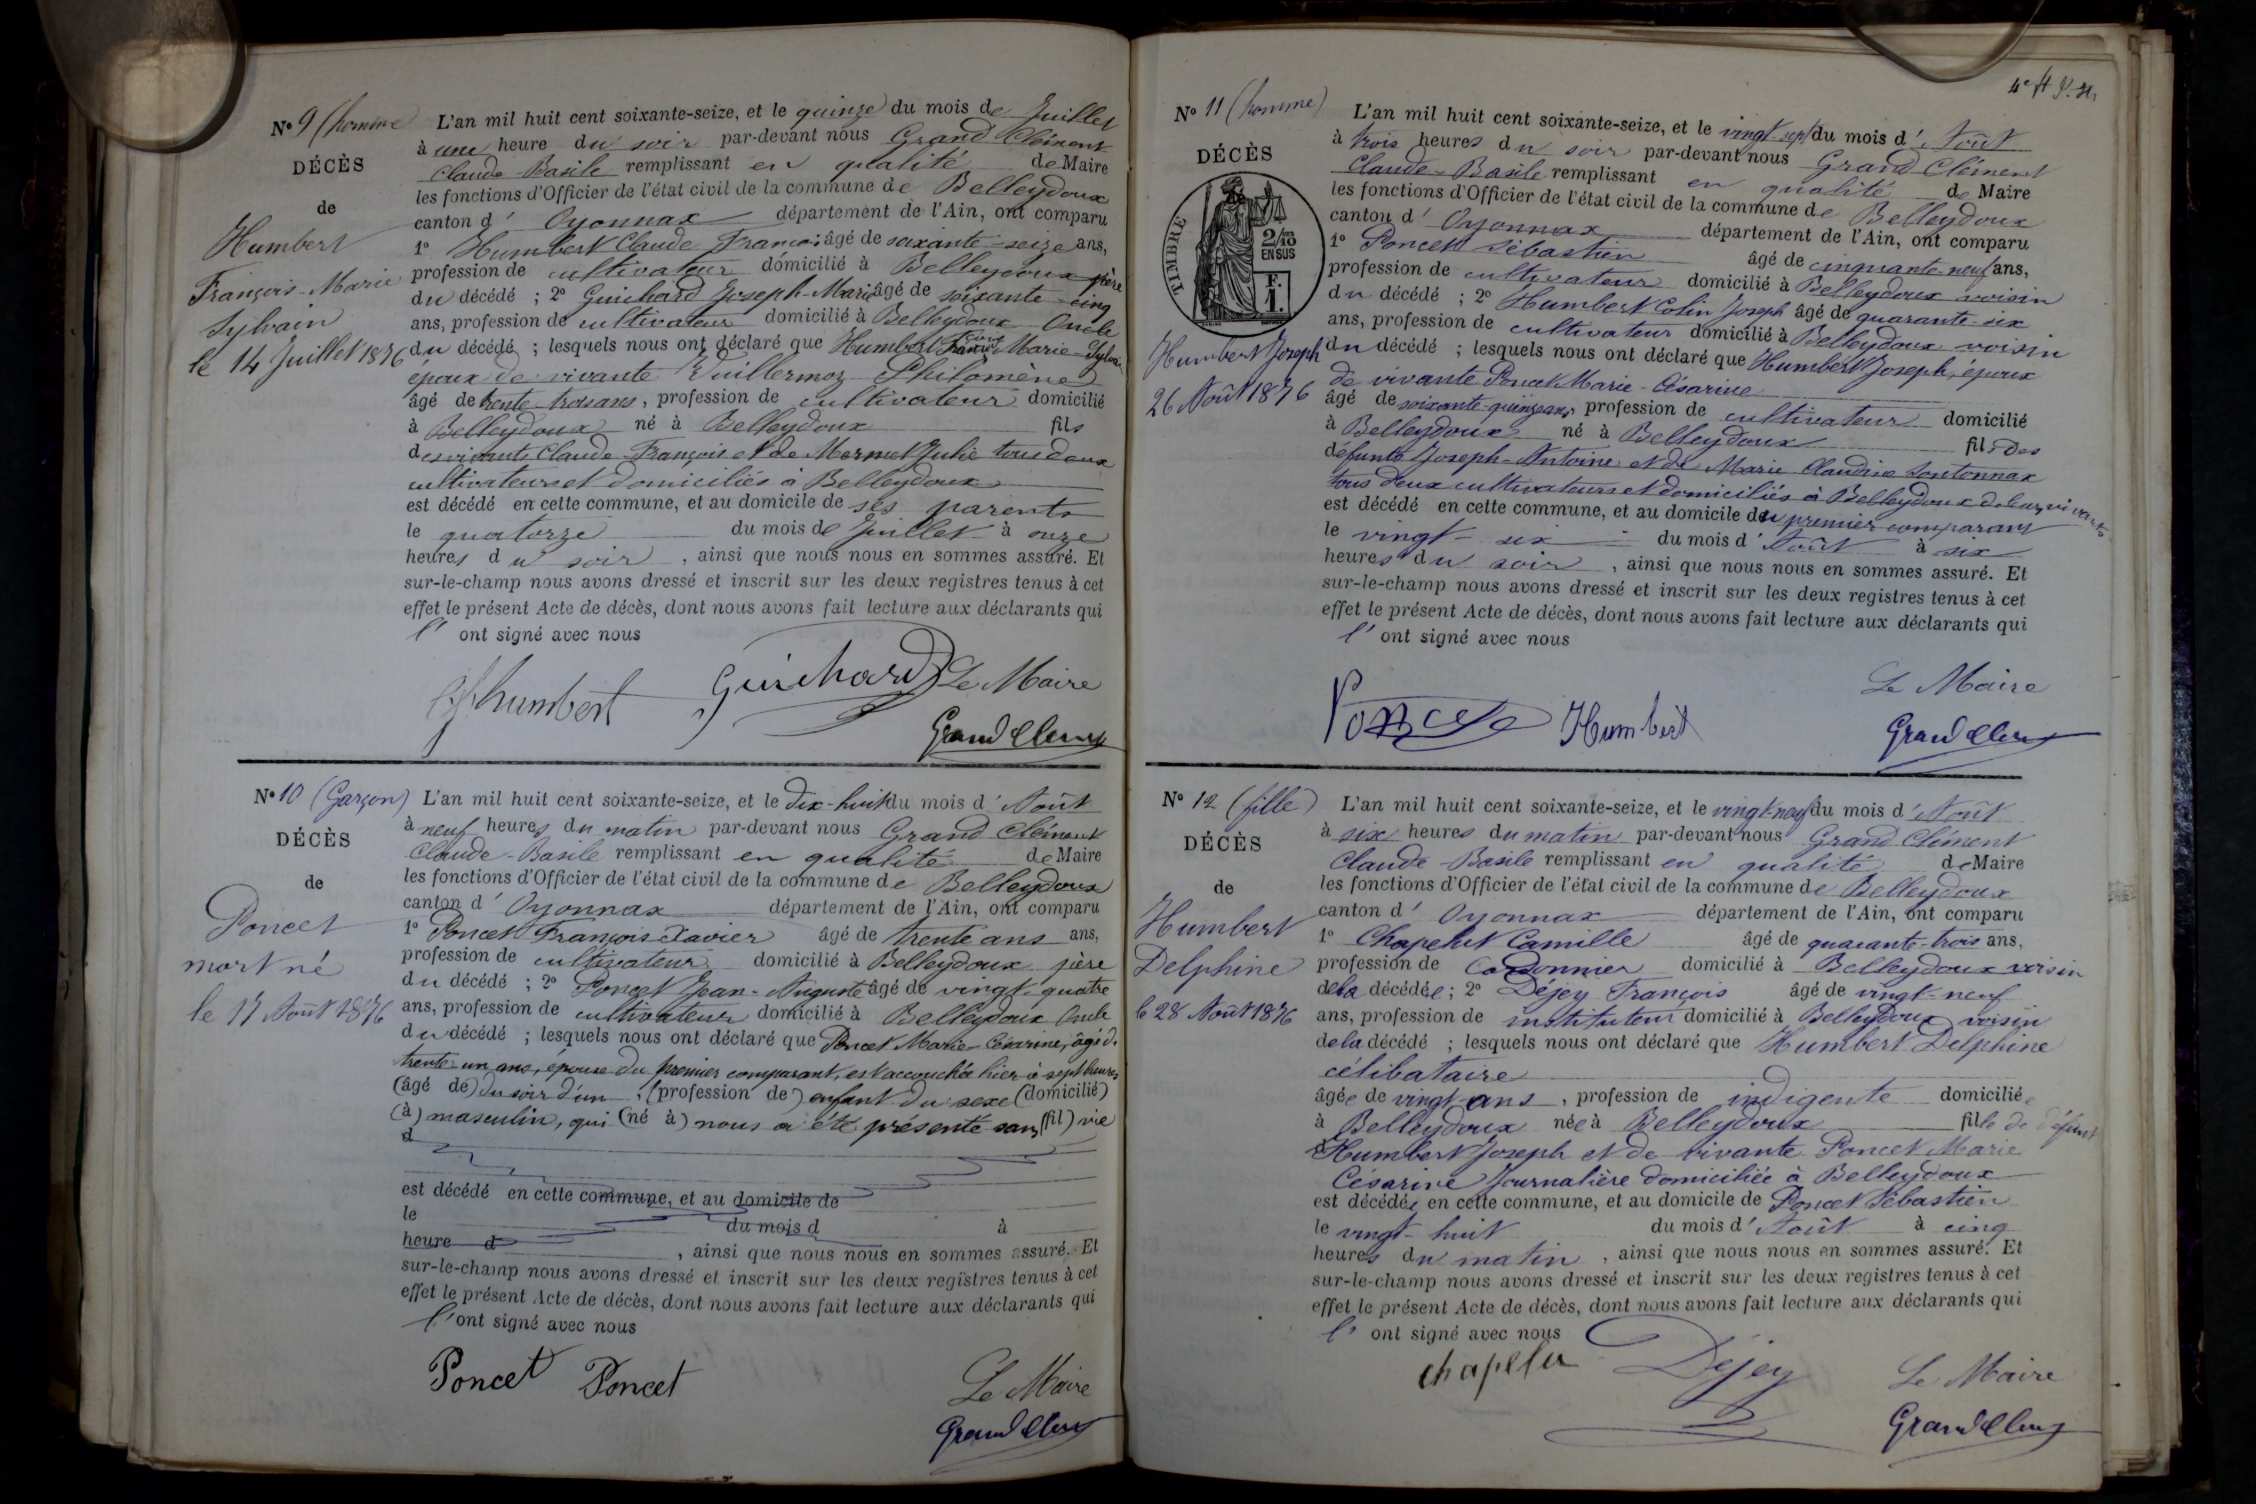 Nº 9 (homme)
DÉCÈS
de
Humbert
François-Marie
Sylvain
le 14 Juillet 1876
L'an mil huit cent soixante-seize, et le quinze du mois de Juillet
à une heure du soir par-devant nous Grand Clément
Claude-Basile remplissant en qualité de Maire
les fonctions d'Officier de l'état civil de la commune de Belleydoux
canton d' Oyonnax département de l'Ain, ont comparu
1º Humbert Claude François âgé de soixante-seize ans,
profession de cultivateur domicilié à Belleydoux père
du décédé ; 2º Guichard Joseph-Marie âgé de soixante-cinq
ans, profession de cultivateur domicilié à Belleydoux Oncle
du décédé ; lesquels nous ont déclaré que Humbert Marie-Sylvain
époux de vivante Vuillermoz Philomène
âgé de trente-trois ans, profession de cultivateur domicilié
à Belleydoux né à Belleydoux fils
des vivants Claude-François et de Mermet Julie tous deux
cultivateurs et domiciliés à Belleydoux
est décédé en cette commune, et au domicile de ses parents
le quatorze du mois de Juillet à onze
heures du soir, ainsi que nous nous en sommes assuré. Et
sur-le-champ nous avons dressé et inscrit sur les deux registres tenus à cet
effet le présent Acte de décès, dont nous avons fait lecture aux déclarants qui
l' ont signé avec nous
humbert Guichard Le Maire
Grand Clément
Nº 10 (Garçon)
DÉCÈS
de
Poncet
mort né
le 17 Août 1876
L'an mil huit cent soixante-seize, et le dix-huit du mois d' Août
à neuf heures du matin par-devant nous Grand Clément
Claude-Basile remplissant en qualité de Maire
les fonctions d'Officier de l'état civil de la commune de Belleydoux
canton d' Oyonnax département de l'Ain, ont comparu
1º Poncet François Xavier âgé de trente ans ans,
profession de cultivateur domicilié à Belleydoux père
du décédé ; 2º Poncet Jean-Auguste âgé de vingt-quatre
ans, profession de cultivateur domicilié à Belleydoux Oncle
du décédé ; lesquels nous ont déclaré que Poncet Marie-Césarine, âgée d.
trente-un ans, épouse du premier comparant, est accouchée hier à sept heures
(âgé de) du soir d'un, (profession de) enfant du sexe (domicilié)
(à) masculin, qui (né à) nous a été présenté sans (fil) vie
d
est décédé en cette commune, et au domicile de
le du mois d à
heure d , ainsi que nous nous en sommes assuré. Et
sur-le-champ nous avons dressé et inscrit sur les deux registres tenus à cet
effet le présent Acte de décès, dont nous avons fait lecture aux déclarants qui
l' ont signé avec nous
Poncet Poncet Le Maire
Grand Clément
Nº 11 (homme)
DÉCÈS
TIMBRE
2/10 EN SUS
F.
1.
Humbert Joseph
26 Août 1876
L'an mil huit cent soixante-seize, et le vingt-sept du mois d' Août
à trois heures du soir par-devant nous Grand Clément
Claude-Basile remplissant en qualité de Maire
les fonctions d'Officier de l'état civil de la commune de Belleydoux
canton d' Oyonnax département de l'Ain, ont comparu
1º Poncet Sébastien âgé de cinquante-neuf ans,
profession de cultivateur domicilié à Belleydoux voisin
du décédé ; 2º Humbert Colin Joseph âgé de quarante-six
ans, profession de cultivateur domicilié à Belleydoux voisin
du décédé ; lesquels nous ont déclaré que Humbert Joseph, époux
de vivante Poncet Marie-Césarine
âgé de soixante-quinze ans, profession de cultivateur domicilié
à Belleydoux né à Belleydoux fils des
défunts Joseph-Antoine et de Marie Claudine Sontonnax
tous deux cultivateurs et domiciliés à Belleydoux de leur vivants
est décédé en cette commune, et au domicile du premier comparant
le vingt-six du mois d' Août à six
heures du soir, ainsi que nous nous en sommes assuré. Et
sur-le-champ nous avons dressé et inscrit sur les deux registres tenus à cet
effet le présent Acte de décès, dont nous avons fait lecture aux déclarants qui
l' ont signé avec nous
Le Maire
Poncet Humbert Grand Clément
Nº 12 (fille)
DÉCÈS
de
Humbert
Delphine
le 28 Août 1876
L'an mil huit cent soixante-seize, et le vingt-neuf du mois d' Août
à six heures du matin par-devant nous Grand Clément
Claude-Basile remplissant en qualité de Maire
les fonctions d'Officier de l'état civil de la commune de Belleydoux
canton d' Oyonnax département de l'Ain, ont comparu
1º Chapelut Camille âgé de quarante-trois ans,
profession de Cordonnier domicilié à Belleydoux voisin
de la décédée ; 2º Déjey François âgé de vingt-neuf
ans, profession de instituteur domicilié à Belleydoux voisin
de la décédé ; lesquels nous ont déclaré que Humbert Delphine
célibataire
âgée de vingt-ans, profession de indigente domiciliée
à Belleydoux née à Belleydoux fille de défunt
Humbert Joseph et de vivante Poncet Marie
Césarine Journalière domiciliée à Belleydoux
est décédée en cette commune, et au domicile de Poncet Sébastien
le vingt-huit du mois d' Août à cinq
heures du matin, ainsi que nous nous en sommes assuré. Et
sur-le-champ nous avons dressé et inscrit sur les deux registres tenus à cet
effet le présent Acte de décès, dont nous avons fait lecture aux déclarants qui
l' ont signé avec nous
Chapelu Déjey Le Maire
Grand Clément